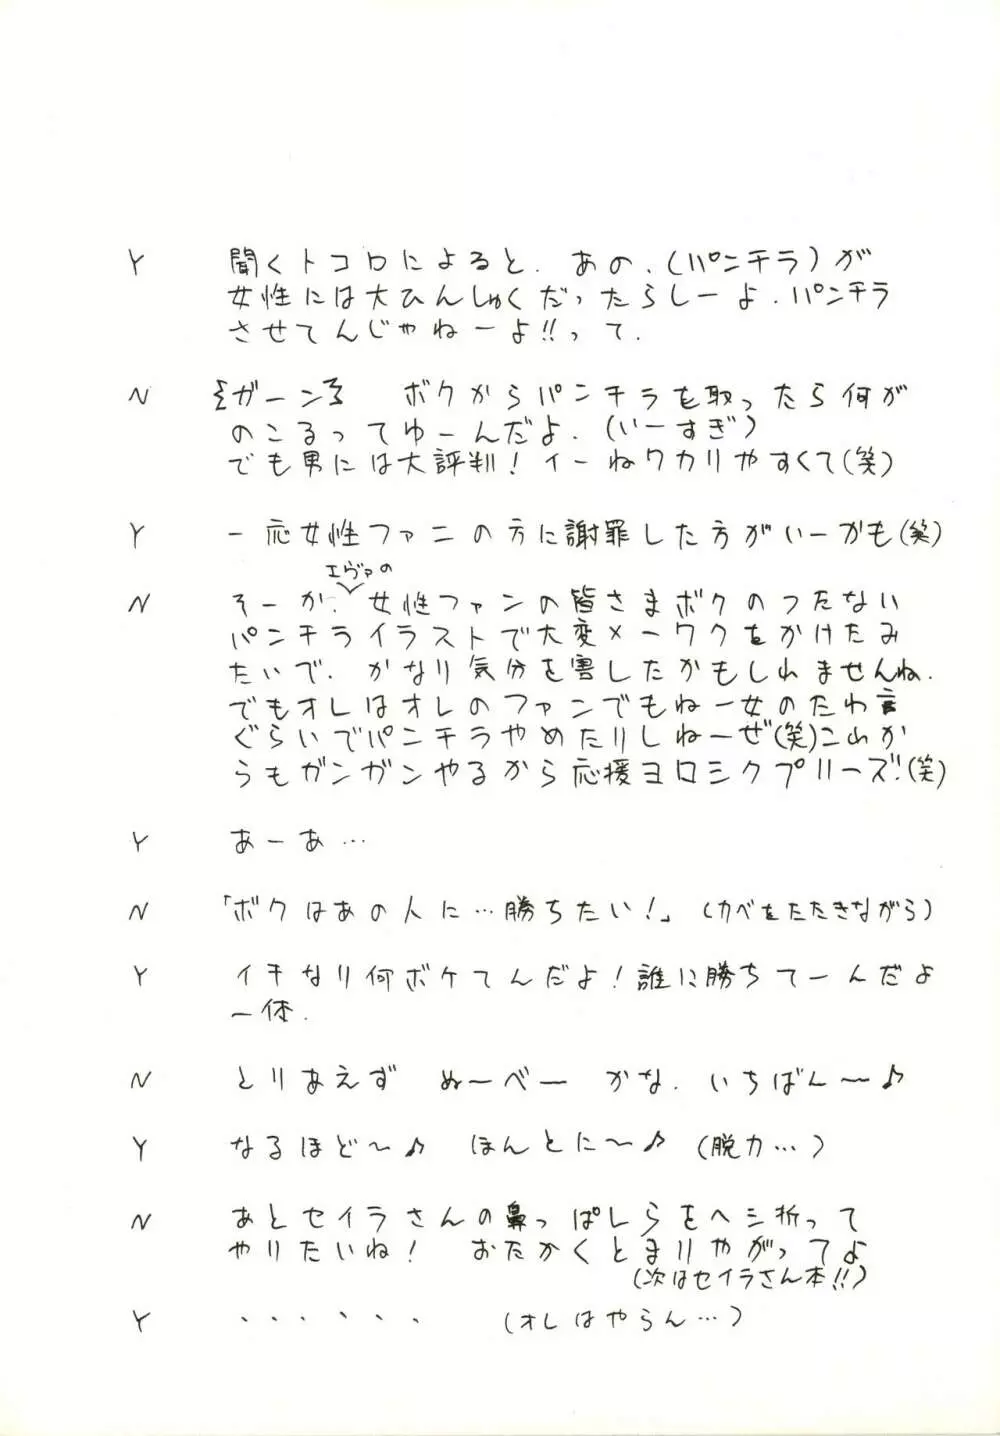 Y 聞くトコロによると.あの.(パンチラ)が
女性には大ひんしゅくだったらしーよ.パンチラ
させてんじゃねーよ!!って.
N ガーン ボクからパンチラを取ったら何が
のこるってゆーんだよ.(いーすぎ)
でも男には大評判!イーねワカリやすくて(笑)
Y 一応女性ファンの方に謝罪した方がいーかも(笑)
エヴァの
N そーか.女性ファンの皆さまボクのつたない
パンチライラストで大変メーワクをかけたみ
たいで.かなり気分を害したかもしれませんね.
でもオレはオレのファンでもねー女のたわ言
ぐらいでパンチラやめたりしねーぜ(笑)これか
らもガンガンやるから応援ヨロシクプリーズ!(笑)
Y あーあ…
N 「ボクはあの人に…勝ちたい!」(カベをたたきながら)
Y イキなり何ボケてんだよ!誰に勝ちてーんだよ
一体.
N とりあえず ぬーべー かな.いちばん〜♪
Y なるほど〜♪ ほんとに〜♪ (脱力…)
N あとセイラさんの鼻っぱしらをヘシ折って
やりたいね! おたかくとまりやがってよ
(次はセイラさん本!!)
Y ・・・・・・ (オレはやらん…)